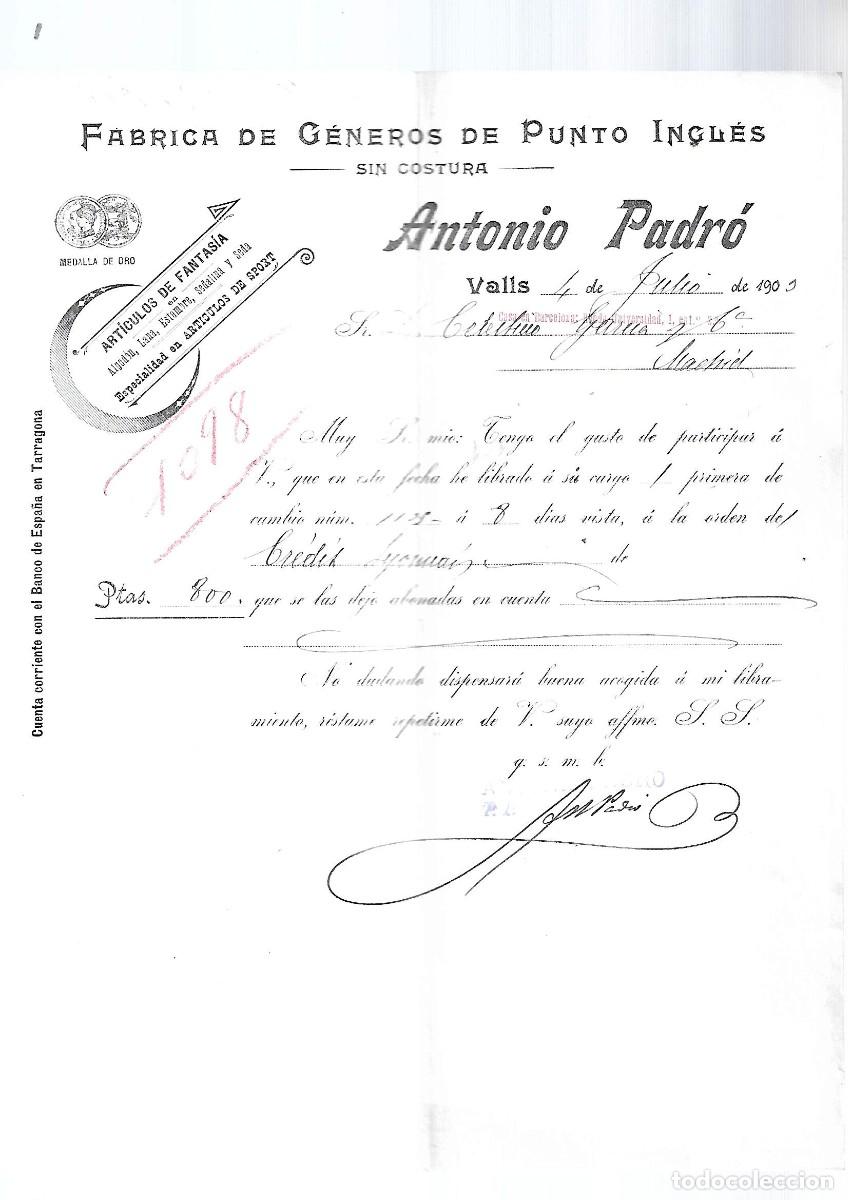 FABRICA DE GÉNEROS DE PUNTO INGLÉS
SIN COSTURA
MEDALLA DE ORO
ARTÍCULOS DE FANTASÍA
en
Algodón, Lana, Estambre, Sedalina y Seda
Especialidad en ARTICULOS DE SPORT
Antonio Padró
Valls 4 de Julio de 1903
Casa en Barcelona: Universidad, 1, ent.º
Sr. D. Celestino Garcia y Cª
Madrid
1098
Muy Sr. mio: Tengo el gusto de participar á
V., que en esta fecha he librado á su cargo 1 primera de
cambio núm. á 8 dias vista, á la orden de
Crédit Lyonnais de
Ptas. 800. que se las dejo abonadas en cuenta
No dudando dispensará buena acogida á mi libra-
miento, réstame repetirme de V. suyo affmo. S. S.
q. s. m. b.
Ant Padró
Cuenta corriente con el Banco de España en Tarragona
todocoleccion